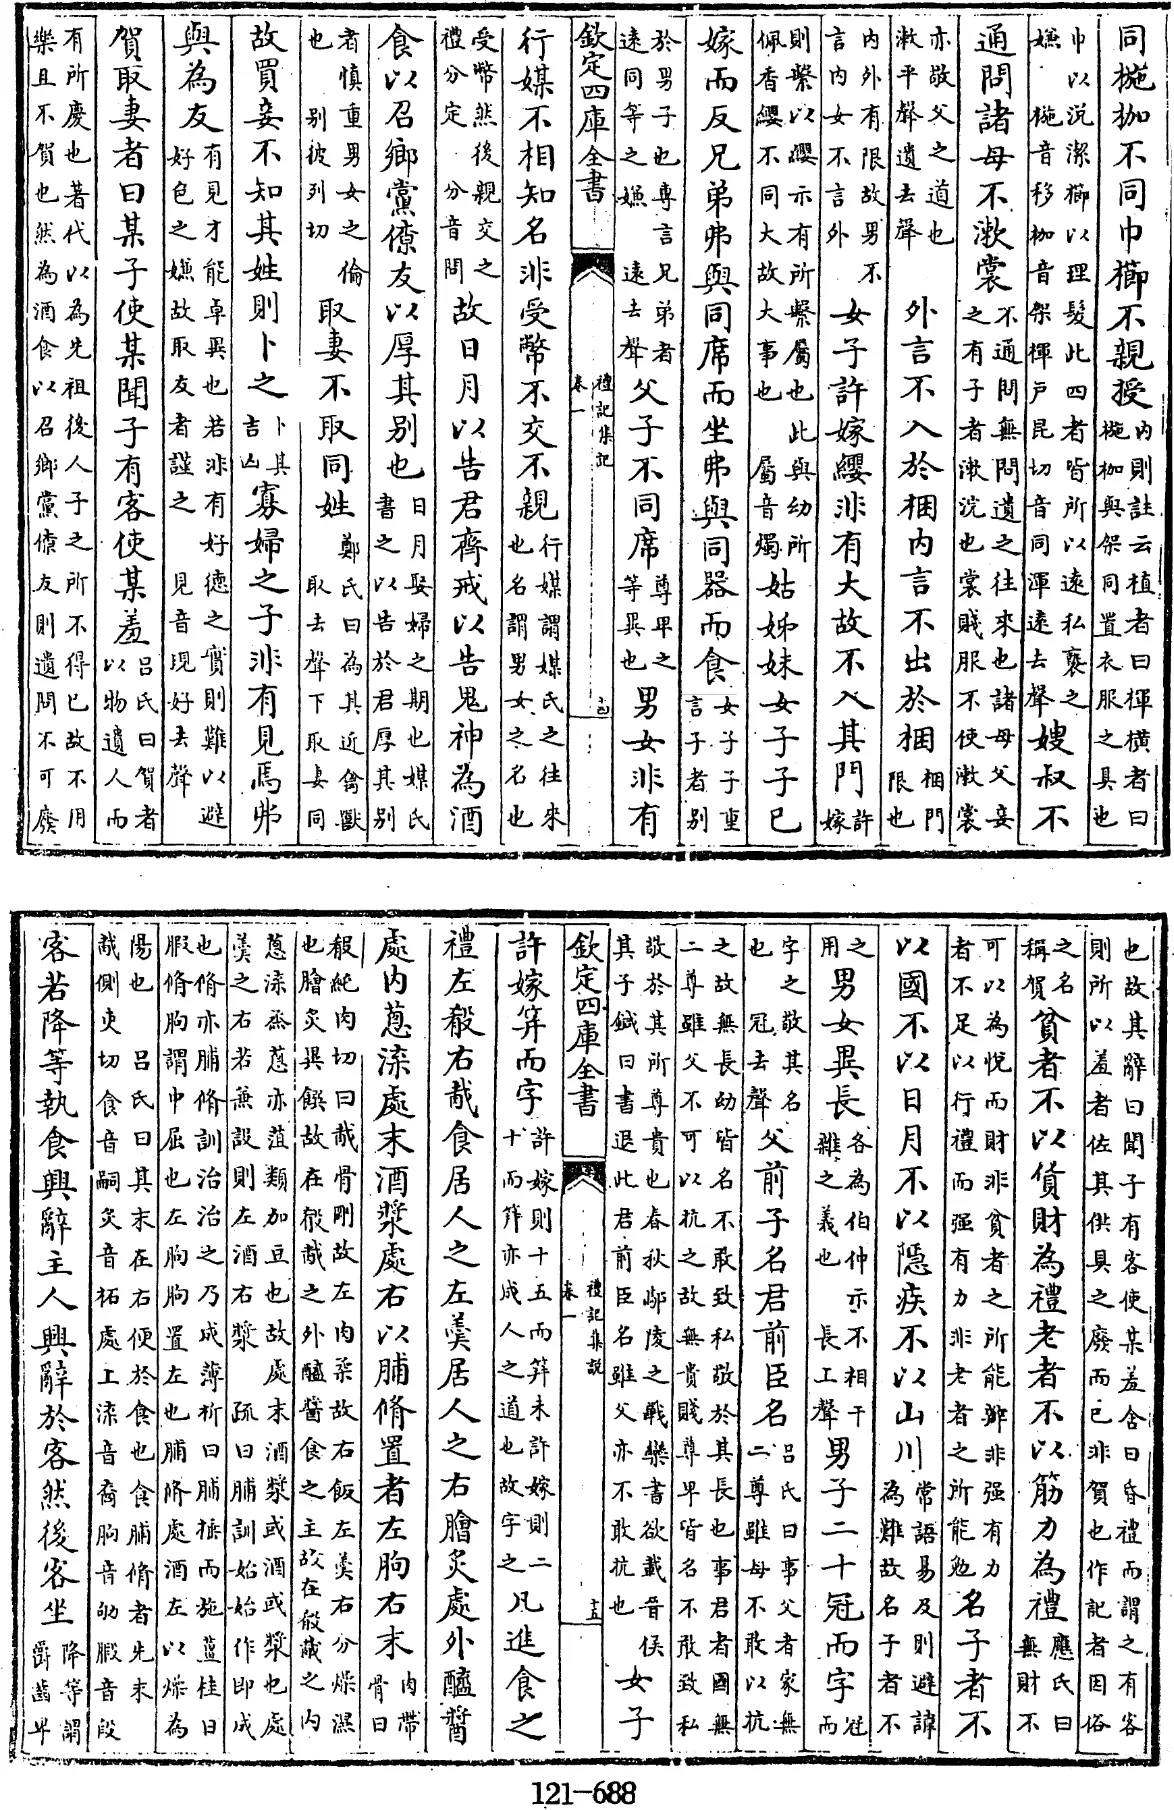 同椸枷不同巾櫛不親授内則註云植者曰楎橫者曰椸枷與架同置衣服之具也
巾以涚潔櫛以理髮此四者皆所以遠私䙝之嫌 椸音移枷音架楎户昆切音同渾遠去聲嫂叔不
通問諸母不漱裳不通問無問遺之往來也諸母父妾之有子者漱浣也裳賤服不使漱裳
亦敬父之道也漱平聲遺去聲外言不入於梱内言不出於梱梱門限也
内外有限故男不言内女不言外女子許嫁纓非有大故不入其門許嫁
則繫以纓示有所繫屬也此與幼所佩香纓不同大故大事也 屬音燭姑姊妹女子子已
嫁而反兄弟弗與同席而坐弗與同器而食女子子重言子者别
於男子也專言兄弟者遠同等之嫌 遠去聲父子不同席尊卑之等異也男女非有
欽定四庫全書 禮記集說 卷一 十四
行媒不相知名非受幣不交不親行媒謂媒氏之往來也名謂男女之名也
受幣然後親交之禮分定 分音問故日月以告君齊戒以告鬼神為酒
食以召鄉黨僚友以厚其别也日月娶婦之期也媒氏書之以告於君厚其别
者慎重男女之倫也 别彼列切取妻不取同姓鄭氏曰為其近禽獸取去聲下取妻同
故買妾不知其姓則卜之卜其吉凶寡婦之子非有見焉弗
與為友有見才能卓異也若非有好德之實則難以避好色之嫌故取友者謹之 見音現好去聲
賀取妻者曰某子使某聞子有客使某羞吕氏曰賀者以物遺人而
有所慶也著代以為先祖後人子之所不得已故不用樂且不賀也然為酒食以召鄉黨僚友則遺問不可廢
也故其辭曰聞子有客使某羞舍曰昏禮而謂之有客則所以羞者佐其供具之廢而已非賀也作記者因俗
之名稱賀貧者不以貨財為禮老者不以筋力為禮應氏曰無財不
可以為悅而財非貧者之所能辦非强有力者不足以行禮而强有力非老者之所能勉名子者不
以國不以日月不以隱疾不以山川常語易及則避諱為難故名子者不
之用男女異長各為伯仲示不相干雜之義也 長上聲男子二十冠而字冠而
字之敬其名也 冠去聲父前子名君前臣名吕氏曰事父者家無二尊雖母不敢以抗
之故無長幼皆名不敢致私敬於其長也事君者國無二尊雖父不可以抗之故無貴賤尊卑皆名不敢致私
敬於其所尊貴也春秋鄢陵之戰欒書欲載晉侯其子鍼曰書退此君前臣名雖父亦不敢抗也女子
欽定四庫全書 禮記集說 卷一 十五
許嫁笄而字許嫁則十五而笄未許嫁則二十而笄亦成人之道也故字之凡進食之
禮左殽右胾食居人之左羹居人之右膾炙處外醯醬
處内蔥渫處末酒漿處右以脯脩置者左朐右末肉帶骨曰
殽純肉切曰胾骨剛故左肉柔故右飯左羹右分燥濕也膾炙異饌故在殽胾之外醯醬食之主故在殽胾之内
蔥渫烝蔥亦菹類加豆也故處末酒漿或酒或漿也處羹之右若兼設則左酒右漿 疏曰脯訓始始作即成
也脩亦脯脩訓治治之乃成薄析曰脯捶而施薑桂曰腶脩朐謂中屈也左朐朐置左也脯脩處酒左以燥為
陽也 吕氏曰其末在右便於食也食脯脩者先末 胾側吏切食音嗣炙音柘處上渫音裔朐音劬腶音段
客若降等執食興辭主人興辭於客然後客坐降等謂爵齒卑
121-688